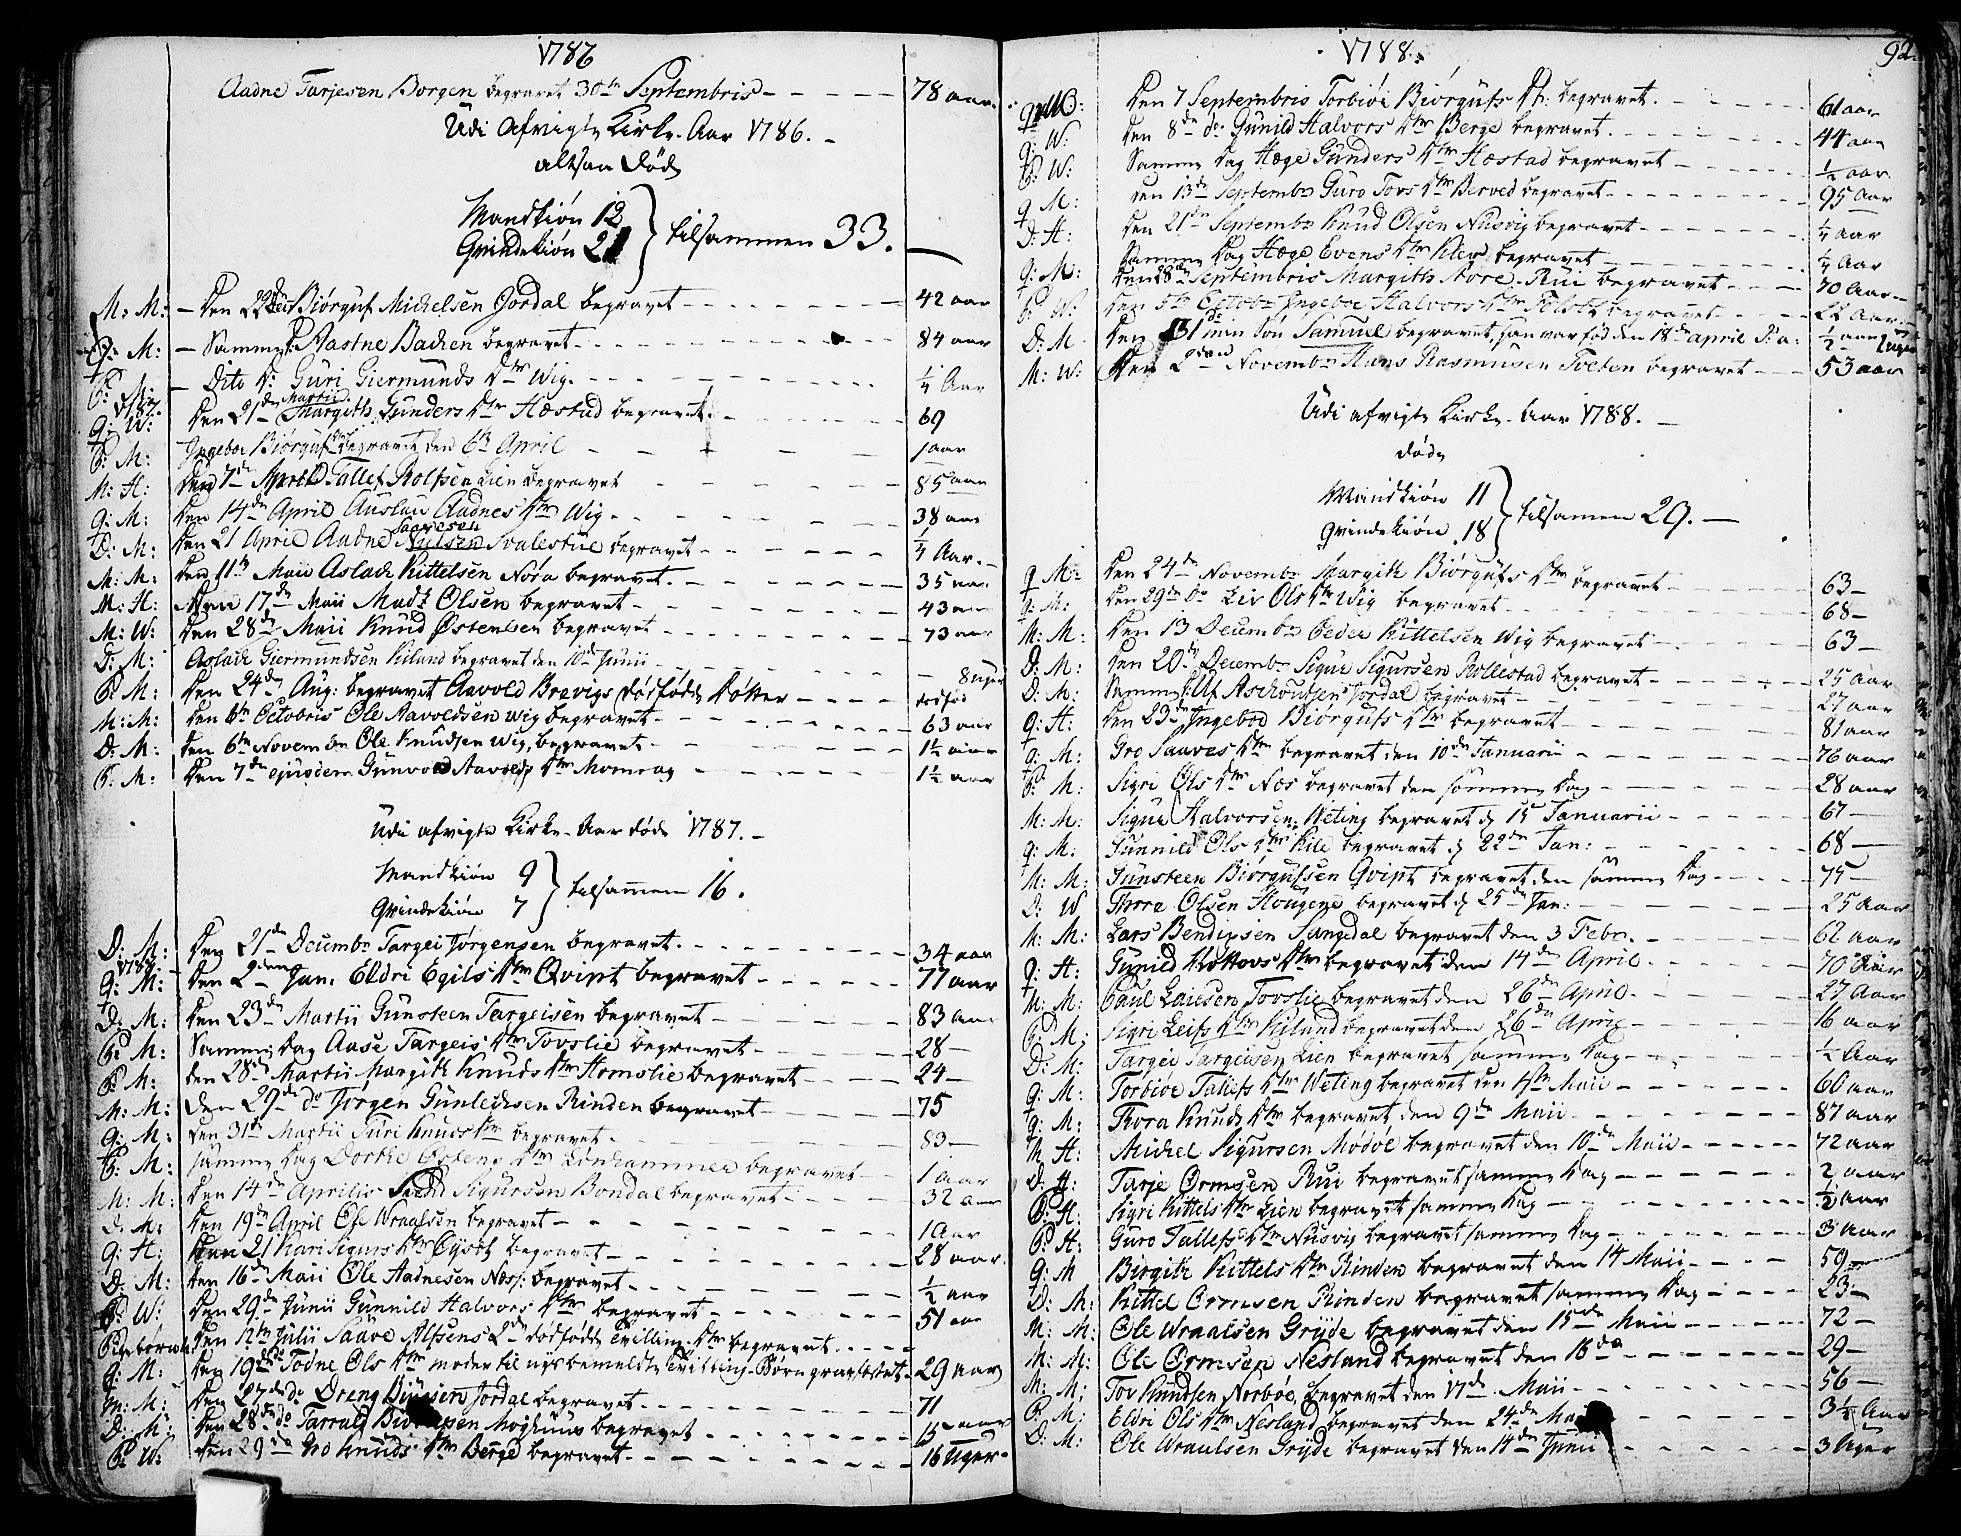 1786
Aadne Tarjesen Borgen begravet 30te Septembris - 78 aar.
Udi afvigte Kirke-Aar 1786.
altsaa Døde
Mandkiøn 12
Qvindekiøn 21 } tilsammen 33.
M: M: Den 22de Biørguf Michelsen Jordal begravet - 42 aar
Q: M: Samme D. Aastne Bachen begravet - 84 aar
P: M: Dito D: Guri Giermunds Dtr Wig. - 1/4 Aar
1787.
Q: W: Den 21de Martii Margith Gunders Dtr Hæstad begravet. - 69
P: M: Ingebor Biørgufs Dtr begravet den 6te April - 1 aar
M: H: Den 7de April Tallef Rolfsen Lien begravet - 85 aar
Q: M: Den 14de April Auslau Aadnes Dtr Wig - 38 aar
D: M: Den 21 April Aadne Saavesen Svalestue begravet - 1/4 Aar.
M: M: Den 11te Maii Aslach Kittelsen Nora begravet. - 35 aar
M: H: Den 17de Maii Mads Olsen begravet - 43 aar
M: W: Den 28de Maii Knud Østensen begravet - 73 aar
D: M: Aslach Giermundsen Kiland begravet den 10de Junii - 8 uger
P: M: Den 24de Aug: begravet Aavold Brevigs dødfødde Dotter - dødfød
M: M: Den 6te Octobris Ole Aavoldsen Wig begravet - 63 aar
D: M: Den 6te Novembr Ole Knudsen Wig, begravet - 1 1/2 aar
P: M: Den 7de ejusdem Gunvor Aavolds Dtr Momrag - 1 1/2 aar
Udi afvigte Kirke-Aar døde 1787.
Mandkiøn 9
Qvindekiøn 7 } tilsamen 16.
D: M: Den 21de Decembr Targei Jørgensen begravet. - 34 aar
1788.
Q: M: Den 2den Jan. Eldri Egils Dtr Qvipt begravet - 77 aar
D: M: Den 23de Martii Gunsteen Targeisen begravet - 83 aar
P: M: Samme Dag Aase Targeis Dtr Tovslie begravet - 28
P: M: Den 28de Martii Margith Knuds Dtr Armslie begravet - 24
M: M: Den 29de do Jørgen Gunleichsen Rinden begravet - 75
Q: M: Den 31te Martii Turi Knuds Dtr begravet - 83
P: M: Samme Dag Dorthe Østens Dtr Lønhammer begravet - 1 aar
M: M: Den 14de Aprilis Svend Sigursen Bondal begravet - 32 aar
D: M: Den 19de April Ole Wraalsen begravet - 1 Aar
Q: H: Den 21 Kari Sigurs Dtr begravet - 28 aar.
D: M: Den 16de Maii Ole Aadnesen Næs: begravet - 1/2 aar
P: W: Den 29de Junii Gunnild Halvors Dtr begravet - 51 aar
Pigebørn Den 12te Julii Saave Alfsens 2de dødfødde tvilling-Dtr begravet
Q: M: Den 19de do Todne Ols Dtr moder til nysbemeldte Tvilling-Børn gravfæstet - 29 aar
M: M: Den 27de do Dreng Jordal begravet - 71
D: M: Den 28de do Tarrald begravet - 15 aar
P: W: Den 29de Gro Knuds Dtr Berge begravet - 16 Uger
1788. 92.
Den 7 Septembris Torbiør Biørgufs Dt: begravet - 61 aar
Q: W: Den 8de do Gunild Halvors Dtr Berge begravet - 44 aar
P: W: Samme Dag Hæge Gunders Dtr Hæstad begravet - 1/2 aar
Q: M: Den 13de Septembr Guro Tovs Dtr Berved begravet - 95 aar
D: H: Den 21de Septembr Knud Olsen Nusvig begravet - 1/4 aar
Samme Dag Hæge Evens Dtr Klev begravet - 1/4 Aar
Q: M: Den 28de Septembris Margith Aore-Rui begravet - 70 Aar
P: W: Den 5te Octobr Ingebor Halvors Dtr begravet - 22 Aar
D: M. Den min Søn Samuel begravet, han var fød den 18de april d: a: - 1/2 aar uger
M: W: Den 2den Novembr Hans Rasmusen Tveten begravet - 53 aar
Udi afvigte Kirke-Aar 1788.
døde
Mandkiøn 11
Qvindekiøn 18 } tilsamen 29.
Q M: Den 24de Novembr Margith Biørgufs Dtr begravet - 63
Q: M: Den 29de do Liv Ols Dtr Wig begravet - 68
M: M: Den 13 Decembr Peder Kittelsen Wig begravet - 63
D: M: Den 20de Decembr Sigur Sigursen Rollestad begravet - 25 Aar
D: M: Samme D: Alf Aschoutsen Jordal begravet - 27 aar
Q: H: Den 23de Ingebor Biørgufs Dtr begravet - 81 aar
Q: M: Gro Saaves Dtr begravet den 10de Januarii - 76 aar
P: M: Sigri Ols Dtr Næs begravet den samme Dag - 28 aar
M: M: Sigur Halvorsen Weting begravet d. 15 Januarii - 67
Q: M: Gunnild Ols Dtr Kile begravet d. 22de Jan: - 68
M: M: Gunsteen Biørgufsen Qvipt begravet den samme Dag - 75
D: W Thore Olsen Hougene begravet d. 25de Jan: - 25 Aar
M: M: Lars Bendixsen Sangdal begravet den 3 Febr. - 62 aar
Q: H: Gunild Dtr begravet den 14de April - 70 Aar
M: M: Paul Tovslie begravet den 26de April - 27 Aar
P: M: Sigri Leifs Dtr Kiland begravet den 26de April - 16 aar
D: M: Targei Targeisen Lien begravet samme Dag - 1/2 Aar
Q: M: Torbiør Tallefs Dtr Weting begravet den 4de Maii - 60 aar
Q: M: Thora Knuds Dtr begravet den 9de Maii - 87 aar
M H: Michel Sigursen Modøl begravet den 10de Maii - 72 aar
D: H: Tarje Ormsen Rui begravet samme Dag - 2 aar
P: H: Sigri Kittels Dtr Lien begravet samme Dag - 1/2 aar
P: H: Guro Tallefs Dtr Nusvig begravet samme Dag - 3 aar
Q: M Birgith Kittels Dtr Rinden begravet den 14 Maii - 59
D: M: Kittel Ormsen Rinden begravet samme Dag - 23
M: M: Ole Wraalsen Gryde begravet den 15de Maii - 72
M: M: Ole Ormsen Nesland begravet den 16de - 29
M: M: Tov Knudsen Norbøe, begravet den 17de Maii - 56
P: M: Eldri Ols Dtr Nesland begravet den 24de Maii - 3 1/2 Aar
D: M: Ole Wraalsen Gryde begravet den 14de Junii - 3 Uger